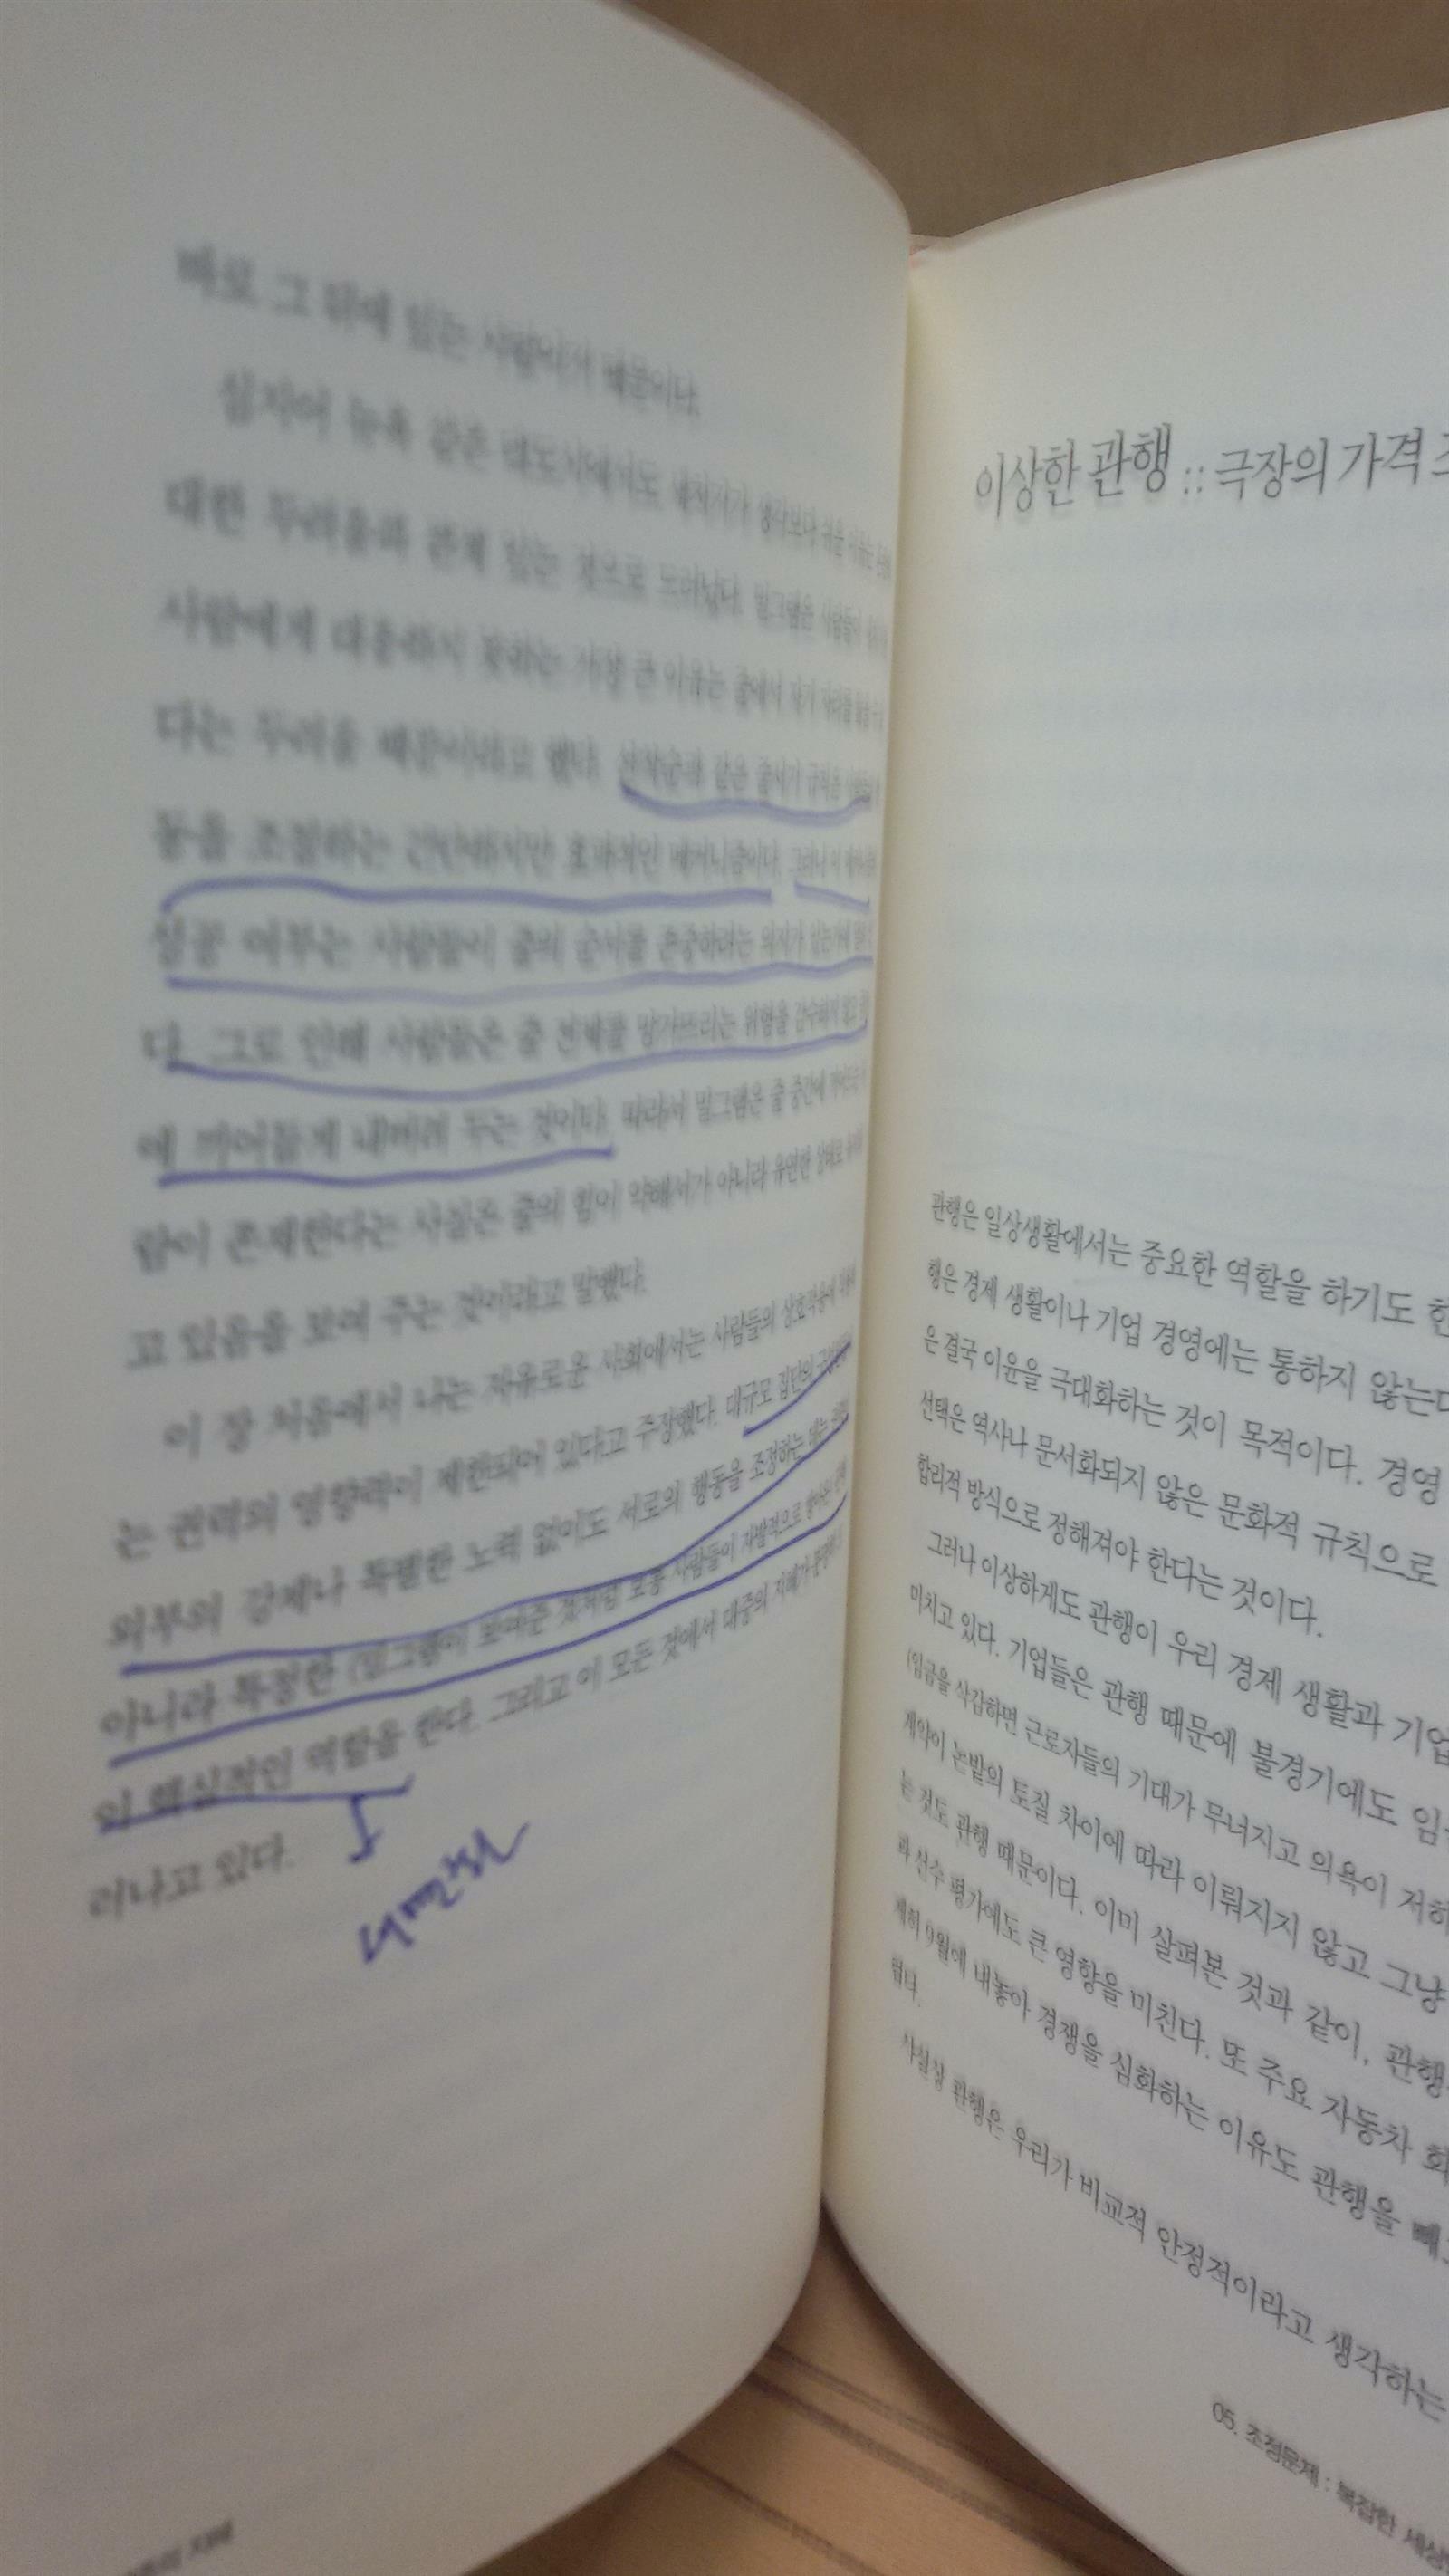 바로 그 뒤에 있는 사람이기 때문이다.
심지어 뉴욕 같은 대도시에서도 새치기가 생각보다 쉬운 이유는
대한 두려움과 관계 있는 것으로 드러났다. 밀그램은 사람들이
사람에게 대응하지 못하는 가장 큰 이유는 줄에서 자기 자리를 잃을
다는 두려움 때문이라고 했다. 선착순과 같은 줄서기 규칙은
동을 조절하는 간단하지만 효과적인 메커니즘이다. 그러나 이
성공 여부는 사람들이 줄의 순서를 존중하려는 의지가 있는가에
다. 그로 인해 사람들은 줄 전체를 망가뜨리는 위험을 감수하지 않고
에 끼어들게 내버려 두는 것이다. 따라서 밀그램은 줄 중간에
람이 존재한다는 사실은 줄의 힘이 약해서가 아니라 유연한 상태로
고 있음을 보여 주는 것이라고 말했다.
이 장 처음에서 나는 자유로운 사회에서는 사람들의 상호작용에
는 권력의 영향력이 제한되어 있다고 주장했다. 대규모 집단의
외부의 강제나 특별한 노력 없이도 서로의 행동을 조정하는 데는
아니라 특정한 (밀그램이 보여준 것처럼 보통 사람들이 자발적으로
이 핵심적인 역할을 한다. 그리고 이 모든 것에서 대중의 지혜가
러나고 있다.
이상한 관행 :: 극장의 가격
관행은 일상생활에서는 중요한 역할을 하기도 한
행은 경제 생활이나 기업 경영에는 통하지 않는다
은 결국 이윤을 극대화하는 것이 목적이다. 경영
선택은 역사나 문서화되지 않은 문화적 규칙으로
합리적 방식으로 정해져야 한다는 것이다.
그러나 이상하게도 관행이 우리 경제 생활과 기업
미치고 있다. 기업들은 관행 때문에 불경기에도 임
(임금을 삭감하면 근로자들의 기대가 무너지고 의욕이 저하
계약이 논밭의 토질 차이에 따라 이뤄지지 않고 그냥
는 것도 관행 때문이다. 이미 살펴본 것과 같이, 관행
과 선수 평가에도 큰 영향을 미친다. 또 주요 자동차 회
제히 9월에 내놓아 경쟁을 심화하는 이유도 관행을 빼
렵다.
사실상 관행은 우리가 비교적 안정적이라고 생각하는
05. 조정문제 : 복잡한 세상